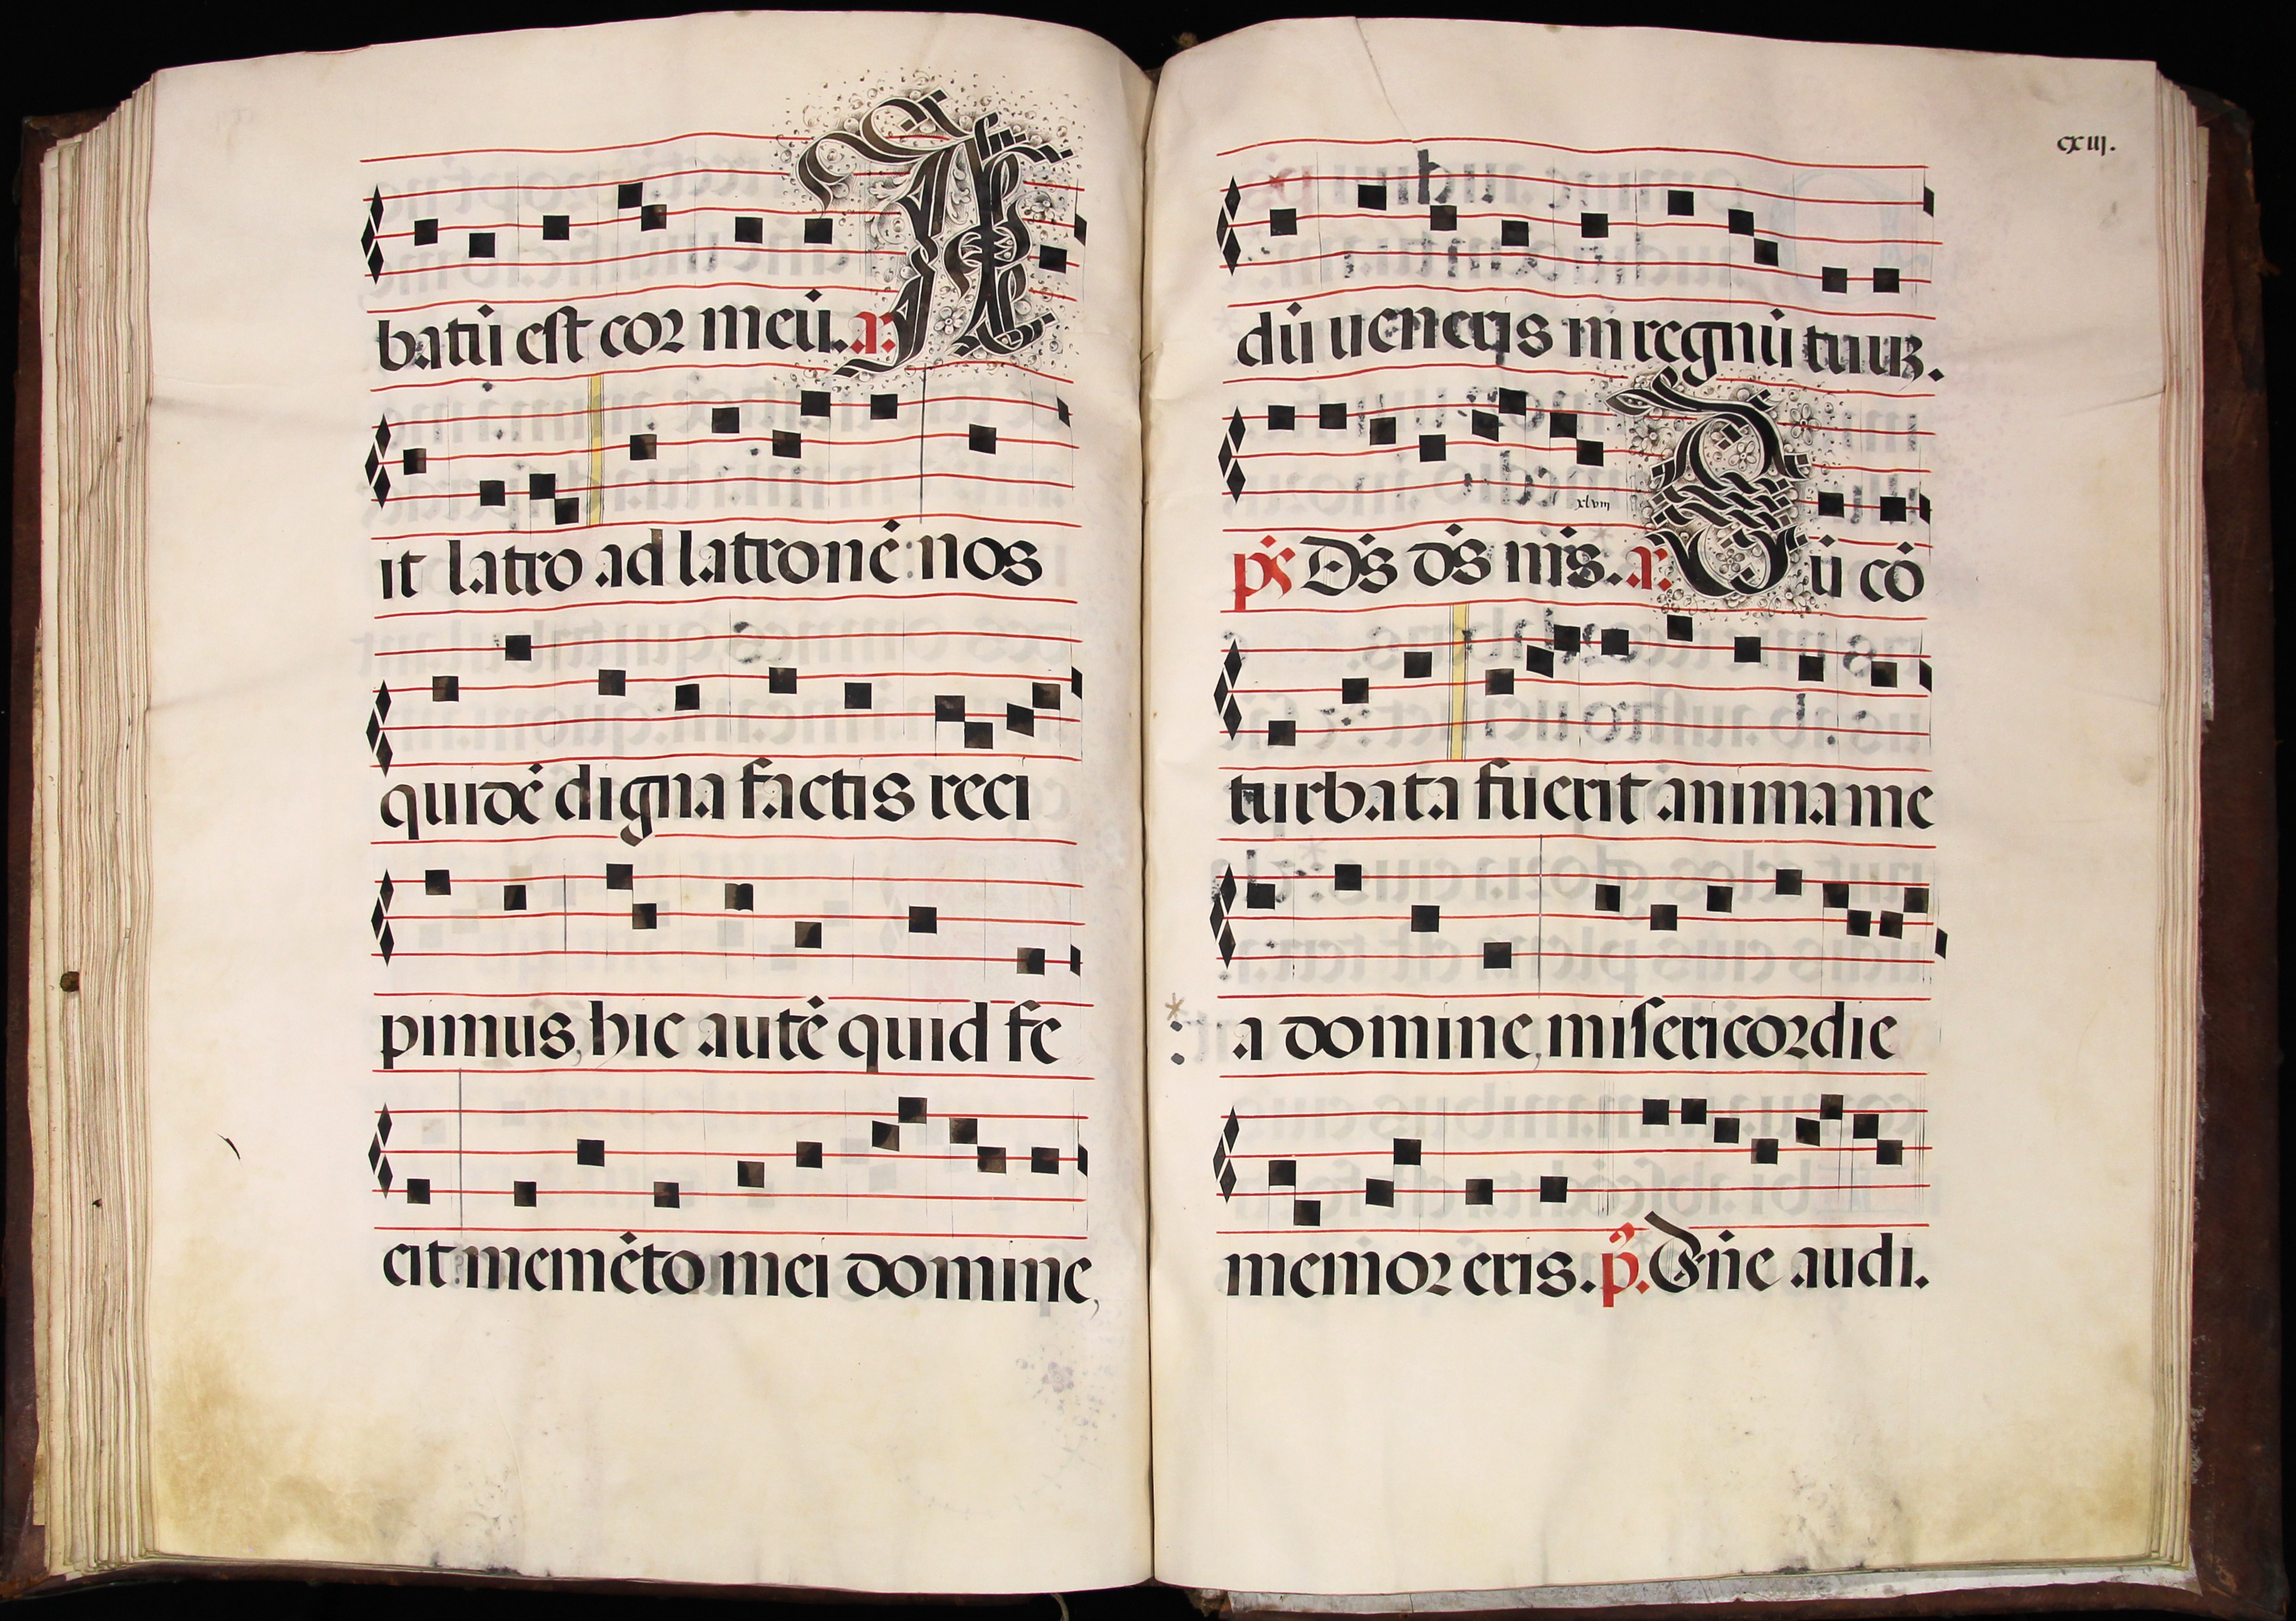 batū est cor meū. a. A
it latro ad latronē: nos
quidē digna factis reci
pimus, hic autē quid fe
cit memēto mei domine,
cxiij.
dū ueneris in regnū tuuz.
xlviij
ps Ds ds ms. a. Cū cō
turbata fuerit anima me
a domine, misericordie
memor eris. p. Dne audi.